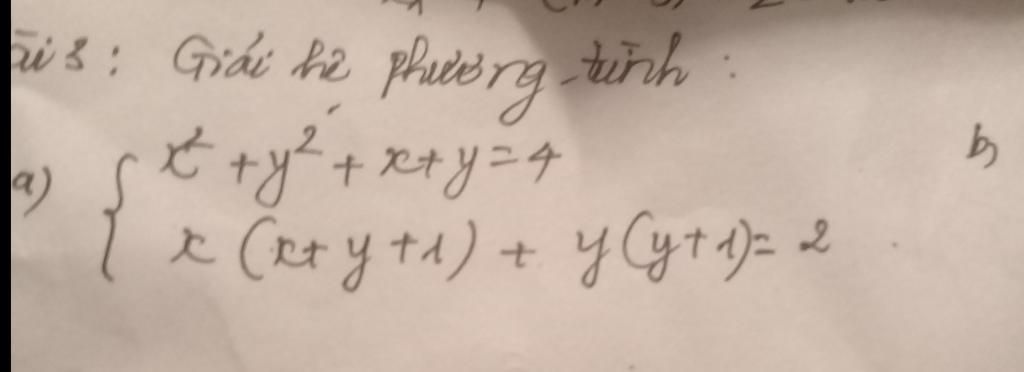 ài 3: Giải hệ phương trình:
a) { x² + y² + x + y = 4
x (x + y + 1) + y (y + 1) = 2
b)